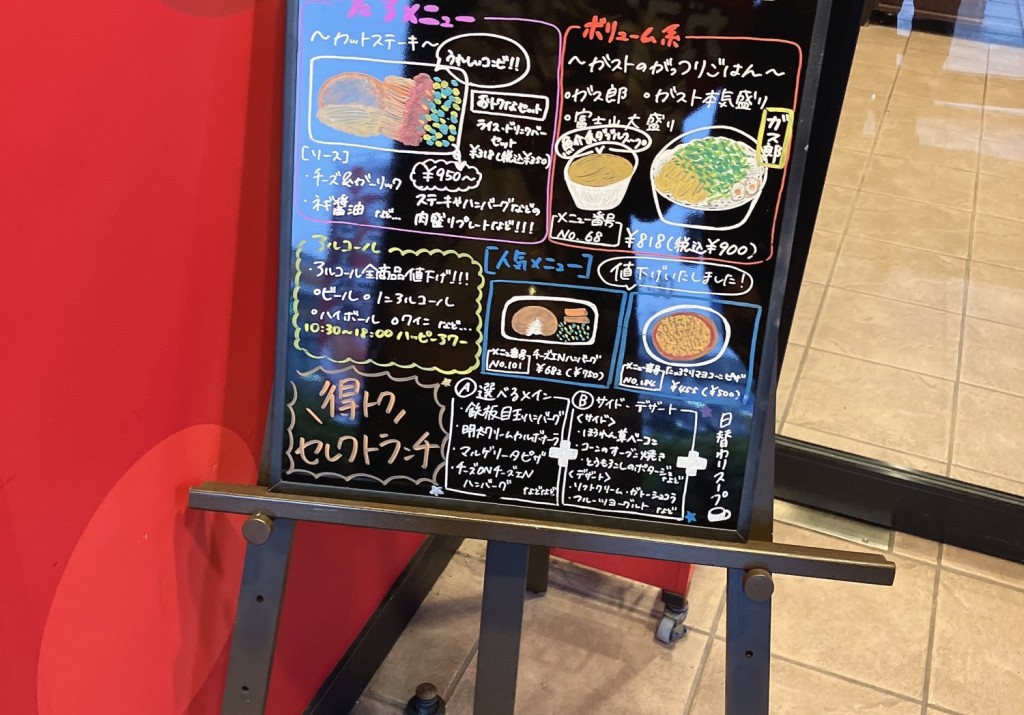 メニュー
～カットステーキ～
うれしいコンビ!!
おトクなセット
ライス・ドリンクバー
セット
¥318(税込¥350)
[ソース]
・チーズ&ガーリック
・ネギ醤油 など…
¥950～
ステーキやハンバーグなどの
肉盛りプレートなど!!!
ボリューム系
～ガストのがっつりごはん～
○ガス郎 ○ガスト本気盛り
○富士山大盛り
ガス郎
魚介豚ダブルスープ
メニュー番号
No.68
¥818(税込¥900)
アルコール
・アルコール全商品値下げ!!!
○ビール ○ノンアルコール
○ハイボール ○ワイン など…
10:30～18:00 ハッピーアワー
[人気メニュー]
値下げいたしました!
メニュー番号
NO.101
チーズINハンバーグ
¥682(¥750)
メニュー番号
NO.184
たっぷりマヨコーンピザ
¥455(¥500)
得トク
セレクトランチ
Ⓐ 選べるメイン
・鉄板目玉ハンバーグ
・明太クリームカルボナーラ
・マルゲリータピザ
・チーズONチーズIN
ハンバーグ
などなど
Ⓑ サイド・デザート
<サイド>
・ほうれん草ベーコン
・コーンのオーブン焼き
・とうもろこしのポタージュ など
<デザート>
・ソフトクリーム・ガトーショコラ
・フルーツヨーグルト など
日替わりスープ